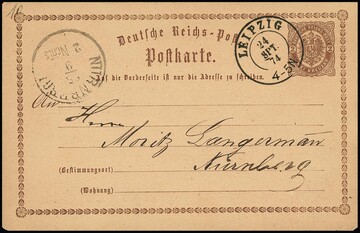 Deutsche Reichs-Post
Postkarte.
Auf die Vorderseite ist nur die Adresse zu schreiben.
LEIPZIG
24
SPT.
74
4-5N
NÜRNBERG
An
Herrn
Moritz Langermann
Nürnberg
(Bestimmungsort)
(Wohnung)